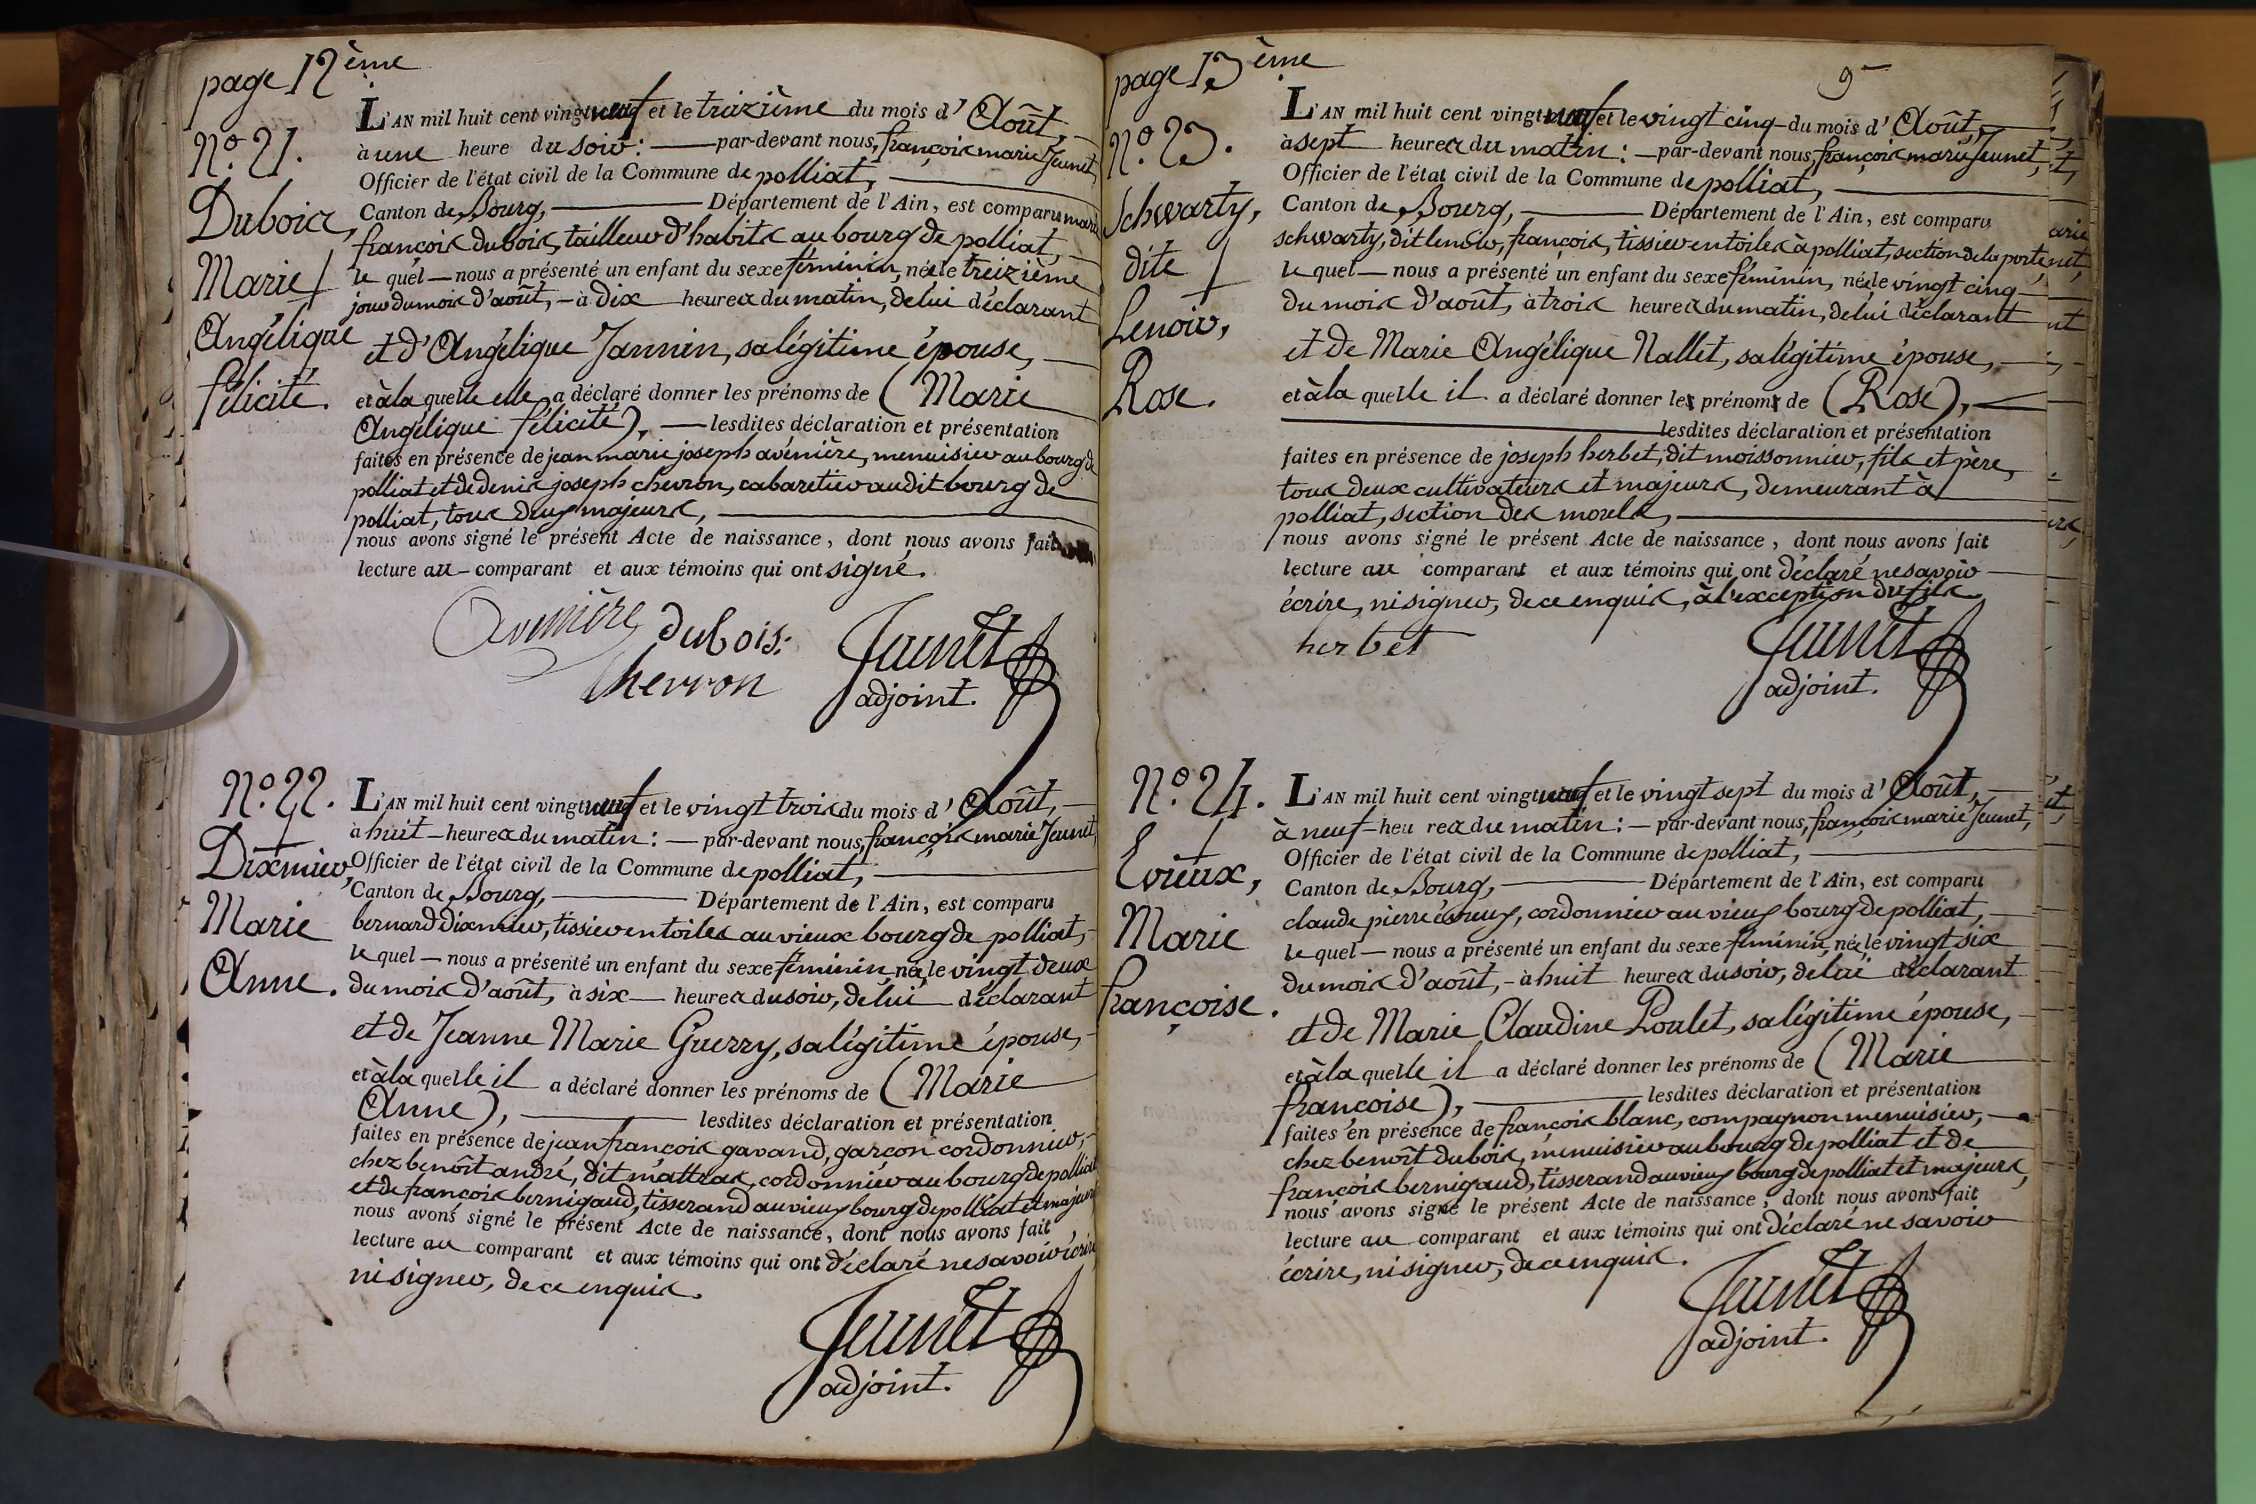 page 12ème
N.° 21.
Dubois,
Marie
Angélique
félicité.
L'AN mil huit cent vingt neuf et le treizième du mois d'Août,
à une heure du soir: par-devant nous, françois marie Jeunet,
Officier de l'état civil de la Commune de polliat,
Canton de Bourg, Département de l'Ain, est comparu marie
françois dubois, tailleur d'habits au bourg de polliat,
le quel nous a présenté un enfant du sexe féminin, née le treizième
jour du mois d'août, à dix heures du matin, de lui déclarant
et d'Angélique Jannin, sa légitime épouse,
et à la quelle elle a déclaré donner les prénoms de (Marie
Angélique félicité), lesdites déclaration et présentation
faites en présence de jean marie joseph avenière, menuisier au bourg de
polliat et de denis joseph chevron, cabaretier audit bourg de
polliat, tous deux majeurs,
nous avons signé le présent Acte de naissance, dont nous avons fait
lecture au comparant et aux témoins qui ont signé.
Avenière dubois.
Chevron
Jeunet
adjoint.
N.° 22.
Dixmier,
Marie
Anne.
L'AN mil huit cent vingt neuf et le vingt trois du mois d'Août,
à huit heures du matin: par-devant nous, françois marie Jeunet,
Officier de l'état civil de la Commune de polliat,
Canton de Bourg, Département de l'Ain, est comparu
bernard dixmier, tissier en toiles au vieux bourg de polliat,
le quel nous a présenté un enfant du sexe féminin, née le vingt deux
du mois d'août, à six heures du soir, de lui déclarant
et de Jeanne Marie Guerry, sa légitime épouse,
et à la quelle il a déclaré donner les prénoms de (Marie
Anne), lesdites déclaration et présentation
faites en présence de jean françois gavand, garçon cordonnier,
chez benoît andré, dit mattras, cordonnier au bourg de polliat
et de françois bernigaud, tisserand au vieux bourg de polliat et majeurs
nous avons signé le présent Acte de naissance, dont nous avons fait
lecture au comparant et aux témoins qui ont déclaré ne savoir écrire
ni signer, de ce enquis.
Jeunet
adjoint.
page 13ème
9
N.° 23.
Schwarty,
dite
Lenoir,
Rose.
L'AN mil huit cent vingt neuf et le vingt cinq du mois d'Août,
à sept heures du matin: par-devant nous, françois marie Jeunet,
Officier de l'état civil de la Commune de polliat,
Canton de Bourg, Département de l'Ain, est comparu
schwarty, dit lenoir, françois, tissier en toiles à polliat, section de la porte,
le quel nous a présenté un enfant du sexe féminin, née le vingt cinq
du mois d'août, à trois heures du matin, de lui déclarant
et de Marie Angélique Nallet, sa légitime épouse,
et à la quelle il a déclaré donner les prénoms de (Rose),
lesdites déclaration et présentation
faites en présence de joseph herbet, dit moissonnier, fils et père,
tous deux cultivateurs et majeurs, demeurant à
polliat, section des morels,
nous avons signé le présent Acte de naissance, dont nous avons fait
lecture au comparant et aux témoins qui ont déclaré ne savoir
écrire, ni signer, de ce enquis, à l'exception du fils
herbet
Jeunet
adjoint.
N.° 24.
Evieux,
Marie
françoise.
L'AN mil huit cent vingt neuf et le vingt sept du mois d'Août,
à neuf heures du matin: par-devant nous, françois marie Jeunet,
Officier de l'état civil de la Commune de polliat,
Canton de Bourg, Département de l'Ain, est comparu
claude pierre évieux, cordonnier au vieux bourg de polliat,
le quel nous a présenté un enfant du sexe féminin, née le vingt six
du mois d'août, à huit heures du soir, de lui déclarant
et de Marie Claudine Poulet, sa légitime épouse,
et à la quelle il a déclaré donner les prénoms de (Marie
françoise), lesdites déclaration et présentation
faites en présence de françois blanc, compagnon menuisier,
chez benoît dubois, menuisier au bourg de polliat et de
françois bernigaud, tisserand au vieux bourg de polliat et majeurs,
nous avons signé le présent Acte de naissance, dont nous avons fait
lecture au comparant et aux témoins qui ont déclaré ne savoir
écrire, ni signer, de ce enquis.
Jeunet
adjoint.